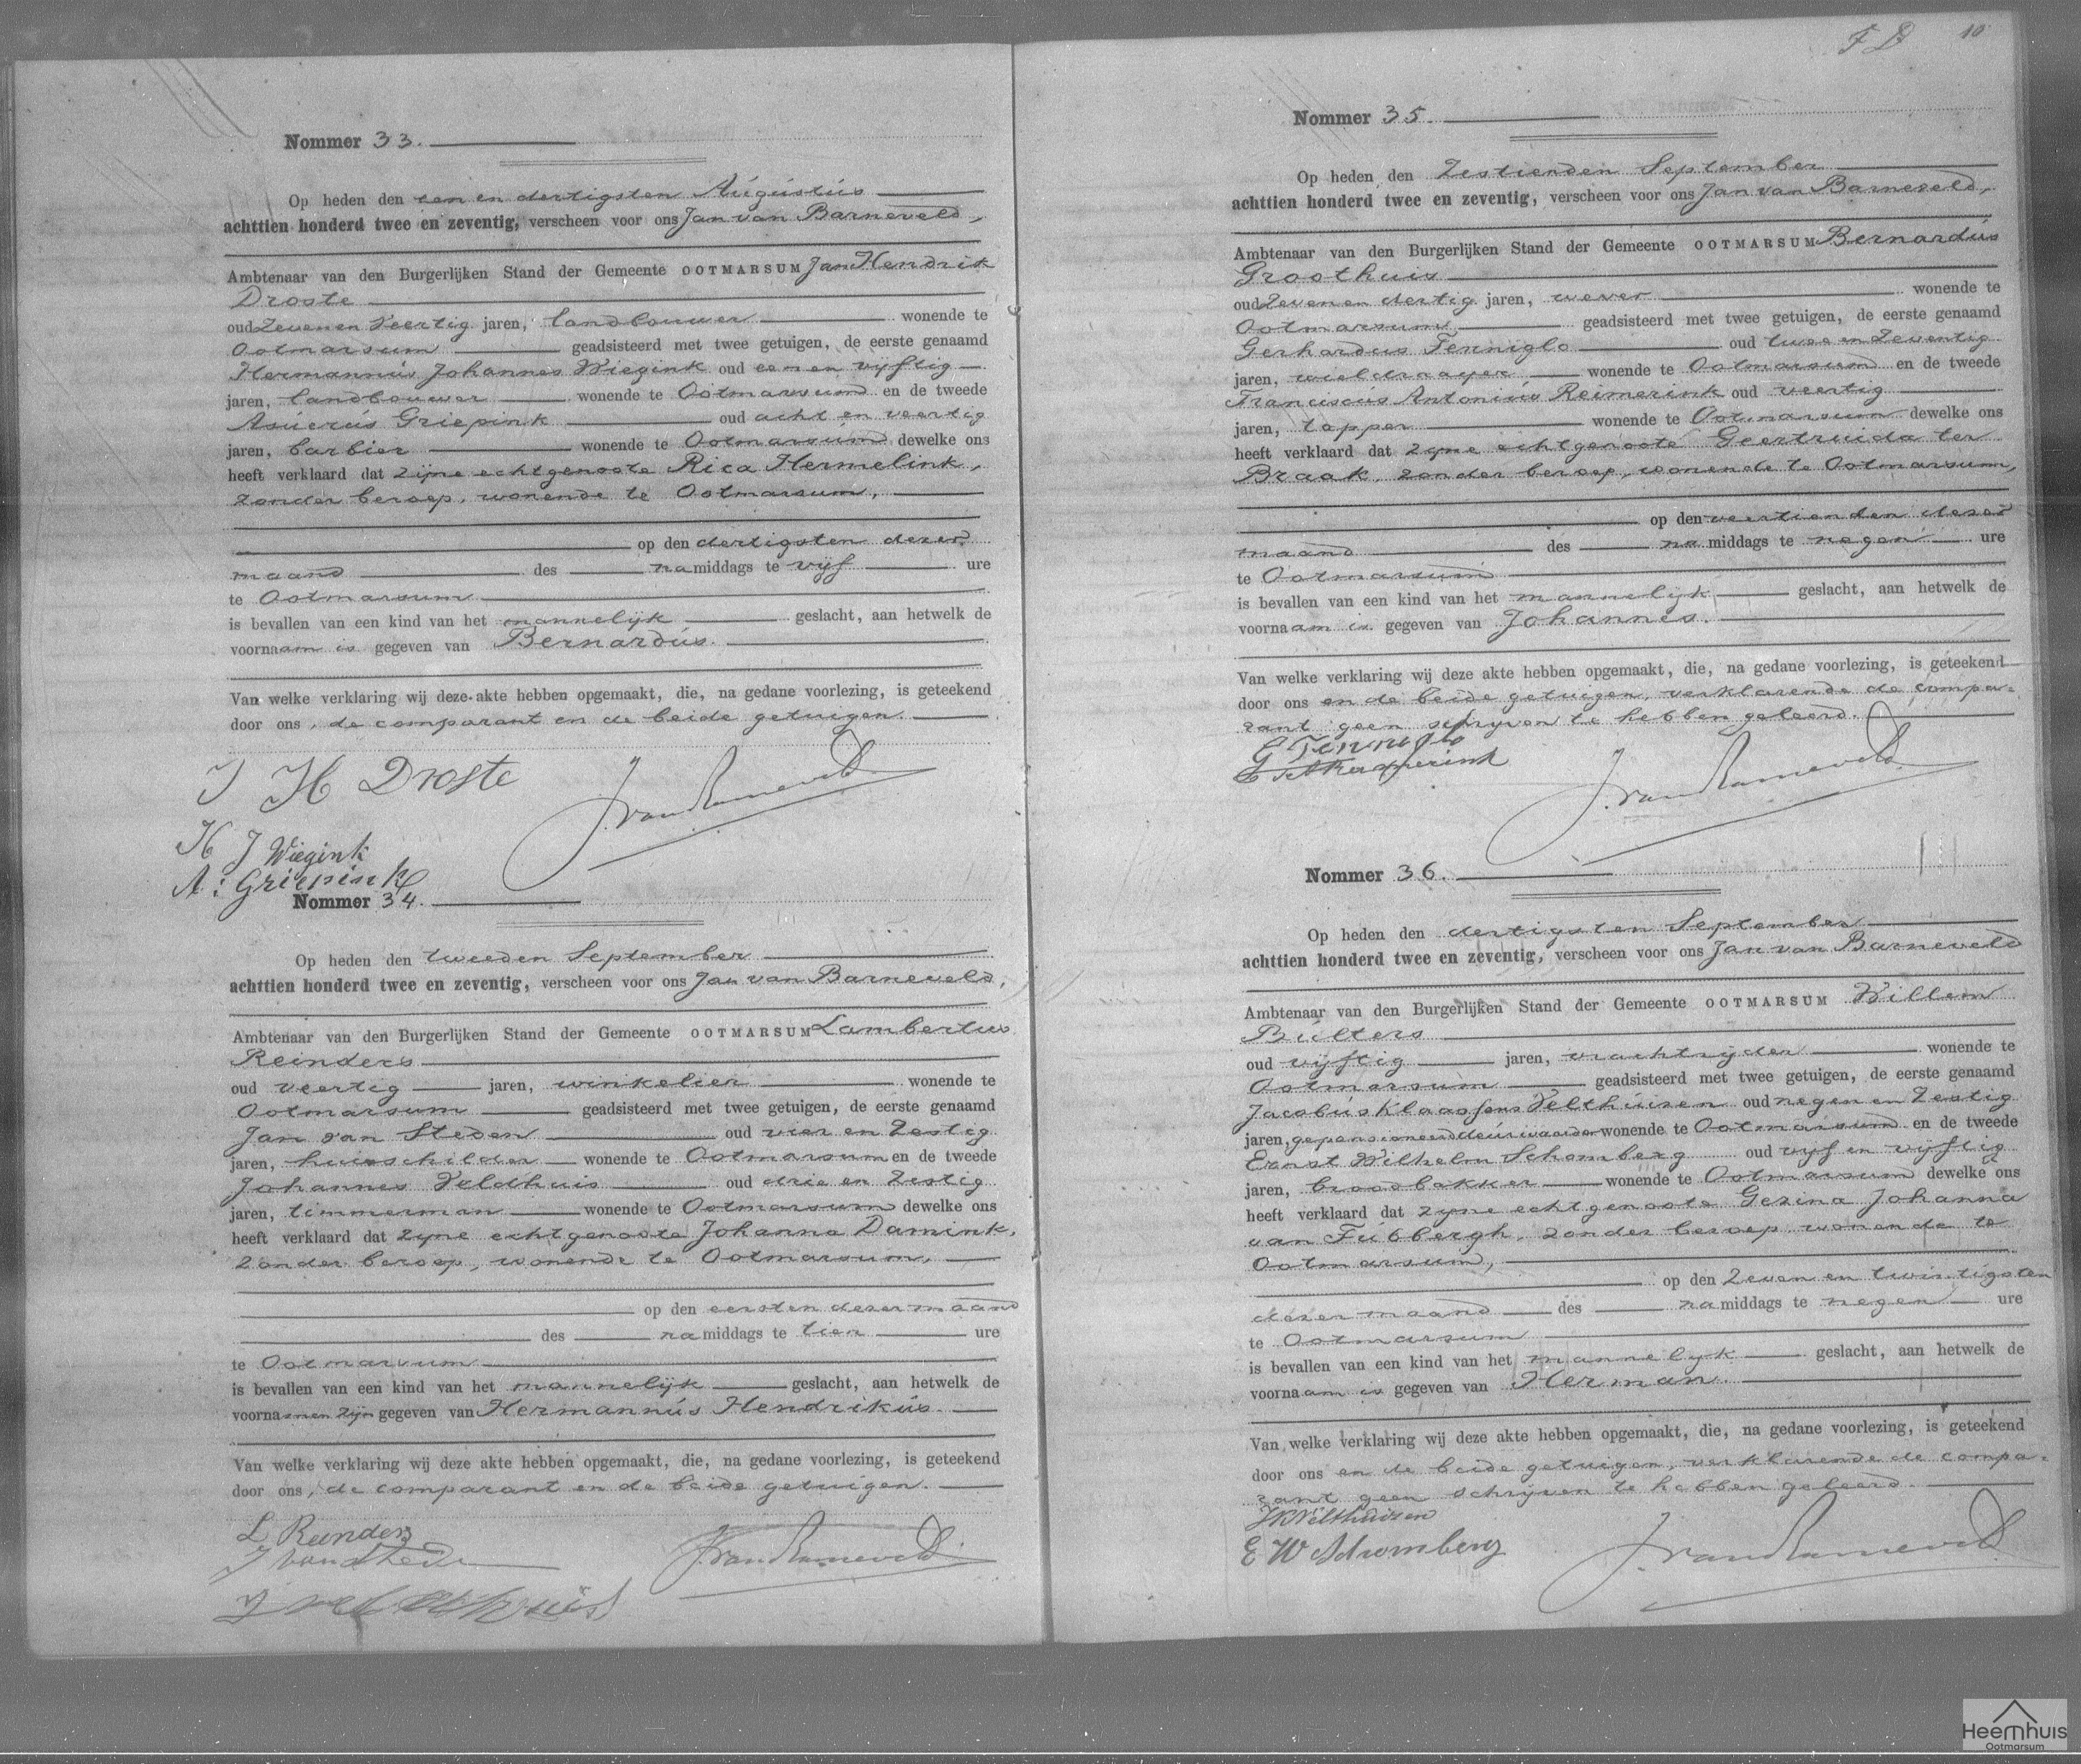 Nommer 33.
Op heden den een en dertigsten Augustus
achttien honderd twee en zeventig, verscheen voor ons Jan van Barneveld,
Ambtenaar van den Burgerlijken Stand der Gemeente OOTMARSUM Jan Hendrik
Droste
oud Zeven en Veertig jaren, landbouwer wonende te
Ootmarsum geadsisteerd met twee getuigen, de eerste genaamd
Hermannus Johannes Wiegink oud een en vijftig
jaren, landbouwer wonende te Ootmarsum en de tweede
Asuerus Griepink oud acht en veertig
jaren, barbier wonende te Ootmarsum dewelke ons
heeft verklaard dat zijne echtgenoote Rica Hermelink,
zonder beroep, wonende te Ootmarsum,
op den dertigsten dezer
maand des namiddags te vijf ure
te Ootmarsum
is bevallen van een kind van het mannelijk geslacht, aan hetwelk de
voornaam is gegeven van Bernardus.
Van welke verklaring wij deze akte hebben opgemaakt, die, na gedane voorlezing, is geteekend
door ons, de comparant en de beide getuigen.
J H Droste
J. van Barneveld
H J Wiegink
A: Griepink
Nommer 34.
Op heden den tweeden September
achttien honderd twee en zeventig, verscheen voor ons Jan van Barneveld,
Ambtenaar van den Burgerlijken Stand der Gemeente OOTMARSUM Lambertus
Reinders
oud veertig jaren, winkelier wonende te
Ootmarsum geadsisteerd met twee getuigen, de eerste genaamd
Jan van Steden oud vier en Zestig
jaren, huisschilder wonende te Ootmarsum en de tweede
Johannes Veldhuis oud drie en Zestig
jaren, timmerman wonende te Ootmarsum dewelke ons
heeft verklaard dat zyne echtgenoote Johanna Damink,
zonder beroep, wonende te Ootmarsum,
op den eersten dezer maand
des namiddags te tien ure
te Ootmarsum
is bevallen van een kind van het mannelijk geslacht, aan hetwelk de
voornamen zijn gegeven van Hermannus Hendrikus.
Van welke verklaring wij deze akte hebben opgemaakt, die, na gedane voorlezing, is geteekend
door ons, de comparant en de beide getuigen.
L Reinders
J van Stede
J. van Barneveld
J veldhuis
10
Nommer 35.
Op heden den Zestienden September
achttien honderd twee en zeventig, verscheen voor ons Jan van Barneveld,
Ambtenaar van den Burgerlijken Stand der Gemeente OOTMARSUM Bernardus
Groothuis
oud Zeven en dertig jaren, wever wonende te
Ootmarsum, geadsisteerd met twee getuigen, de eerste genaamd
Gerhardus Tenniglo oud twee en Zeventig
jaren, wieldraayer wonende te Ootmarsum en de tweede
Franciscus Antonius Reimerink oud veertig
jaren, tapper wonende te Ootmarsum dewelke ons
heeft verklaard dat zyne echtgenoote Geertruida ter
Braak, zonder beroep, wonende te Ootmarsum,
op den veertienden dezer
maand des namiddags te negen ure
te Ootmarsum
is bevallen van een kind van het mannelijk geslacht, aan hetwelk de
voornaam is gegeven van Johannes.
Van welke verklaring wij deze akte hebben opgemaakt, die, na gedane voorlezing, is geteekend
door ons en de beide getuigen, verklarende de compa-
rant geen schryven te hebben geleerd.
G Tenniglo
J. van Barneveld
Nommer 36.
Op heden den dertigsten September
achttien honderd twee en zeventig, verscheen voor ons Jan van Barneveld
Ambtenaar van den Burgerlijken Stand der Gemeente OOTMARSUM Willem
Bulters
oud vijftig jaren, vrachtrijder wonende te
Ootmarsum geadsisteerd met twee getuigen, de eerste genaamd
Jacobus Klaassens Velthuisen oud negen en Zestig
jaren, gepensioneerd deurwaarder wonende te Ootmarsum en de tweede
Ernst Wilhelm Schomberg oud vijf en vijftig
jaren, broodbakker wonende te Ootmarsum dewelke ons
heeft verklaard dat zyne echtgenoote Gezina Johanna
van Fubbergh, zonder beroep wonende te
Ootmarsum,
op den Zeven en twintigsten
dezer maand des namiddags te negen ure
te Ootmarsum
is bevallen van een kind van het mannelyk geslacht, aan hetwelk de
voornaam is gegeven van Herman.
Van welke verklaring wij deze akte hebben opgemaakt, die, na gedane voorlezing, is geteekend
door ons en de beide getuigen, verklarende de compa-
rant geen schrijven te hebben geleerd.
JKVelthuisen
E W Schomberg
J. van Barneveld
Heemhuis
Ootmarsum